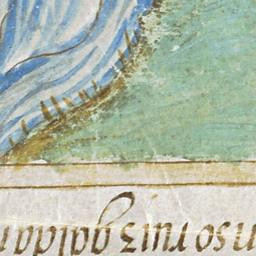 nso ruiz galda